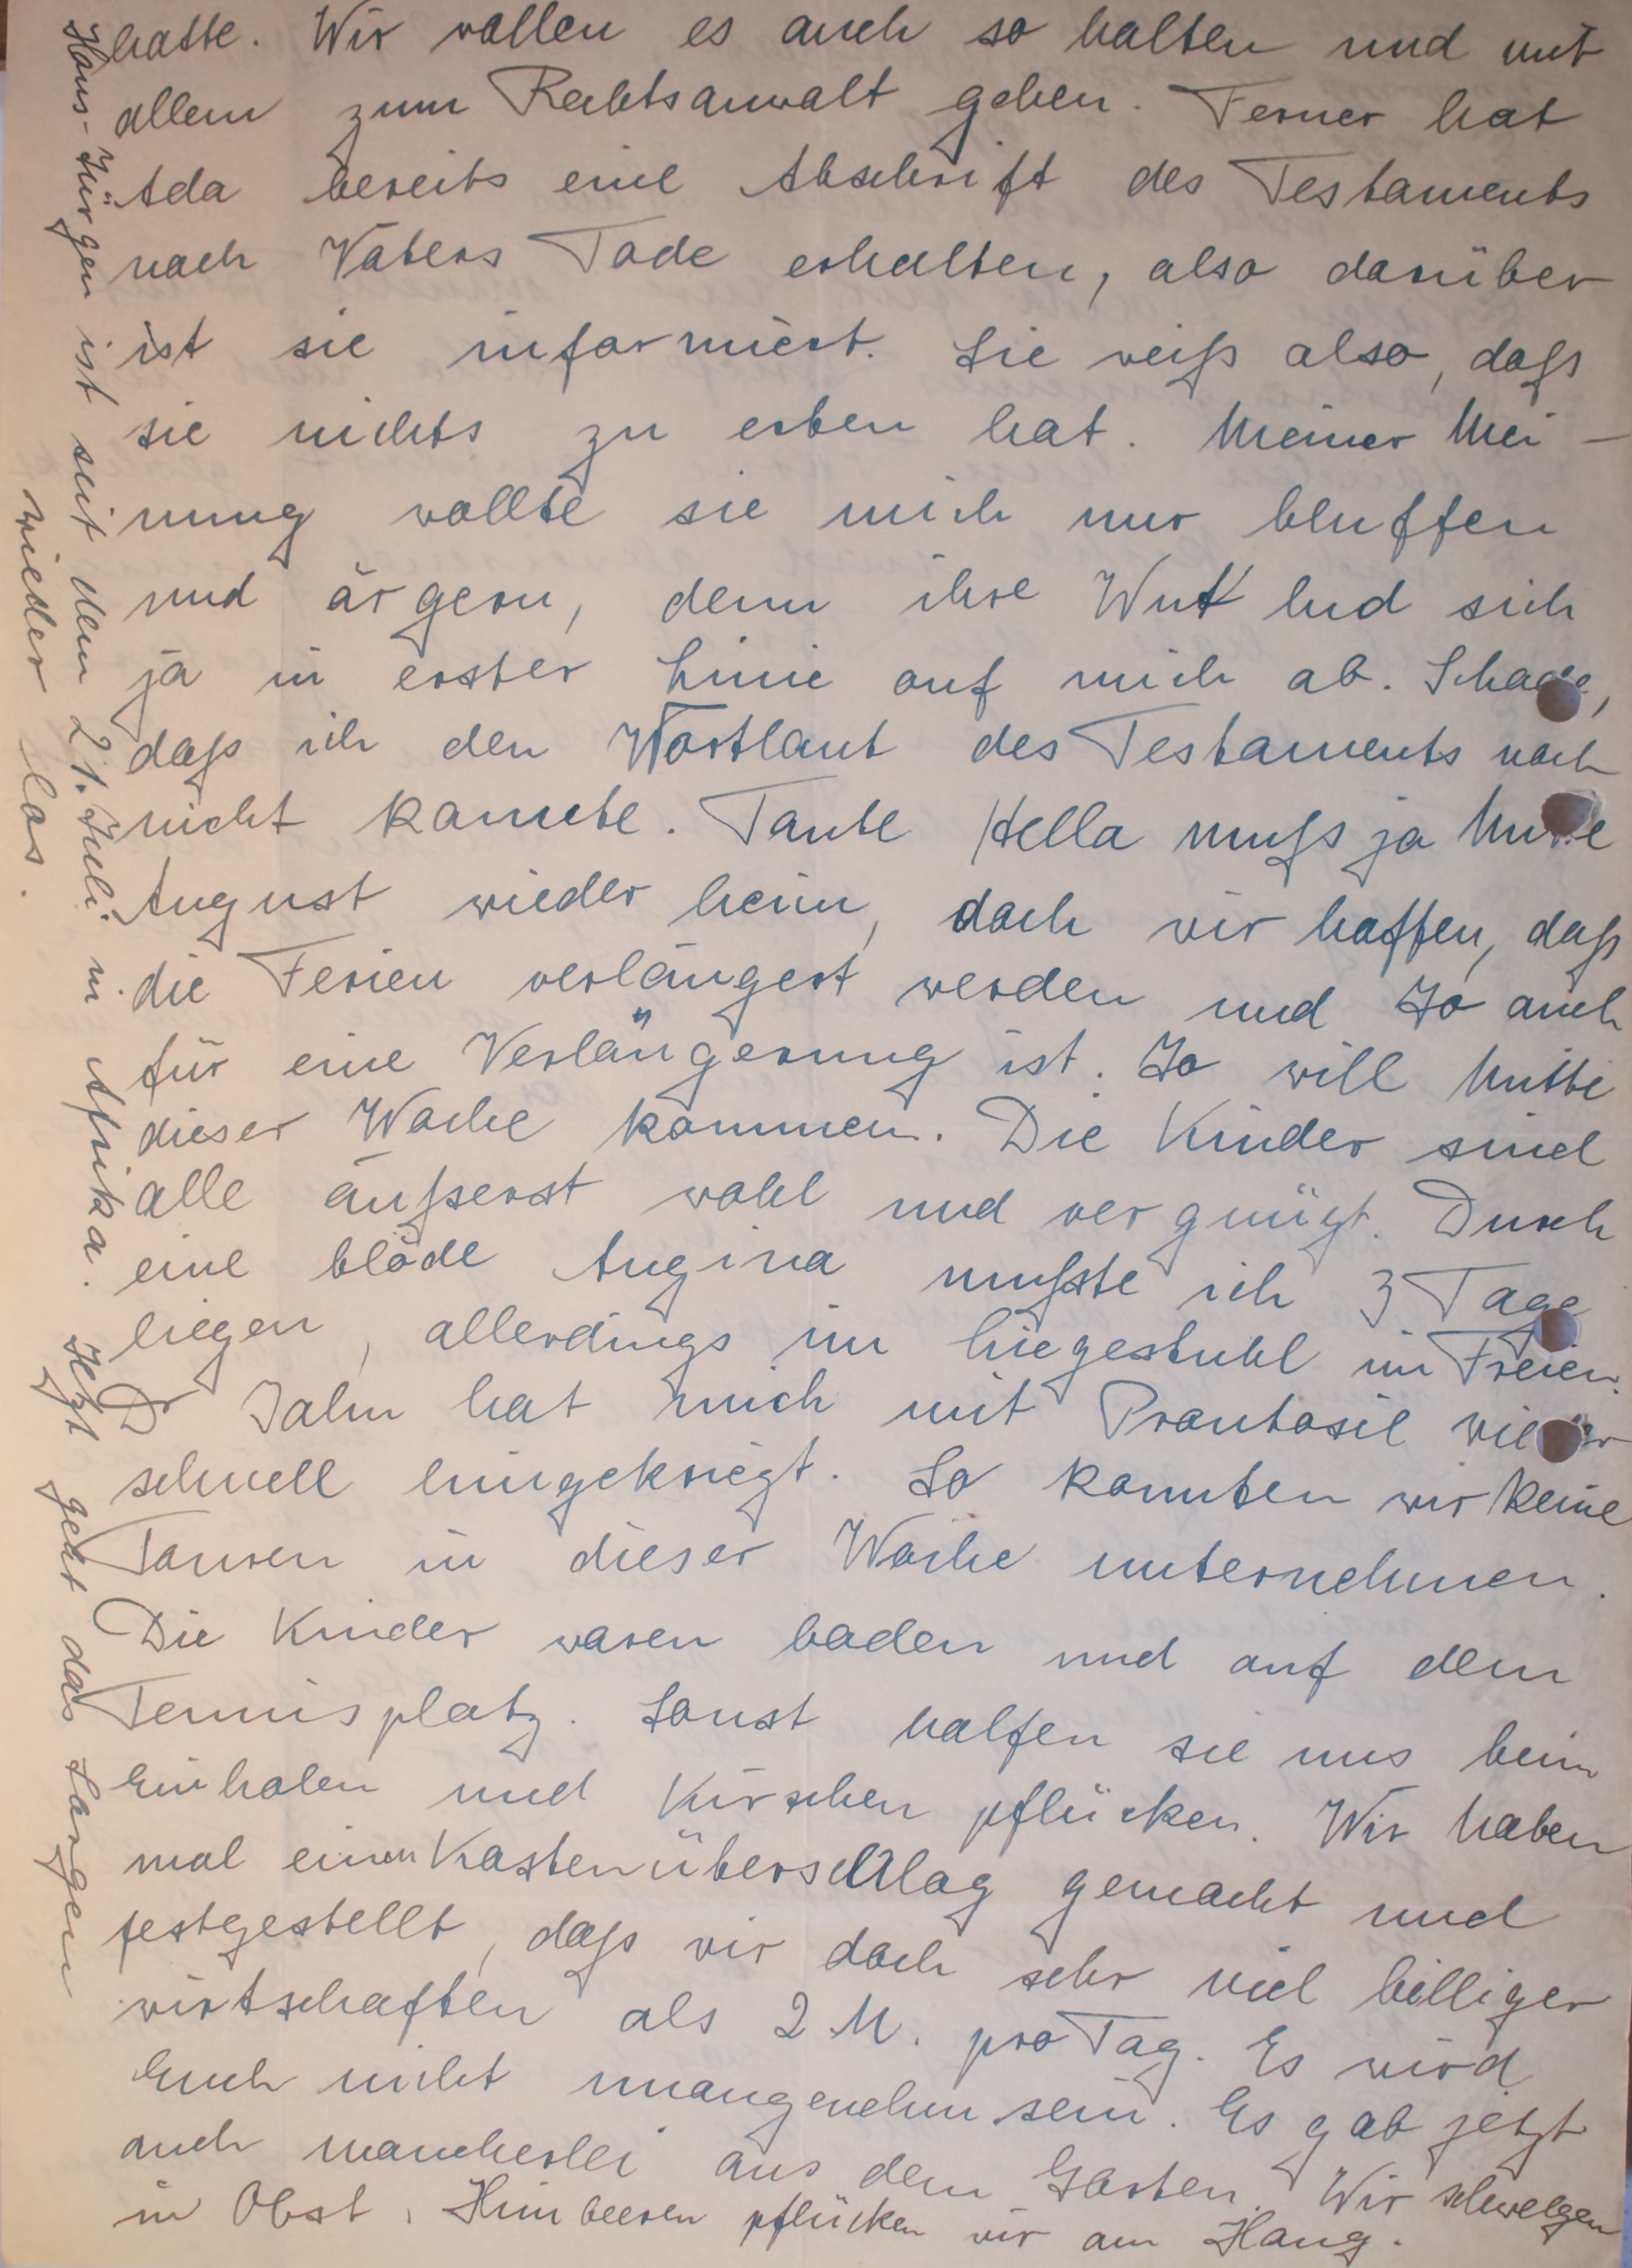 hatte. Wir wollen es auch so halten und mit
allem zum Rechtsanwalt gehen. Ferner hat
Ada bereits eine Abschrift des Testaments
nach Vaters Tode erhalten, also darüber
ist sie informiert. Sie weiß also, daß
sie nichts zu erben hat. Meiner Mei-
nung wollte sie mich nur bluffen
und ärgern, denn ihre Wut lud sich
ja in erster Linie auf mich ab. Schade,
daß ich den Wortlaut des Testaments noch
nicht kannte. Tante Hella muß ja Mitte
August wieder heim, doch wir hoffen, daß
die Ferien verlängert werden und Jo auch
für eine Verlängerung ist. Jo will Mitte
dieser Woche kommen. Die Kinder sind
alle äußerst wohl und vergnügt. Durch
eine blöde Angina mußte ich 3 Tage
liegen, allerdings im Liegestuhl im Freien.
Dr Jahn hat mich mit Prontosil wieder
schnell hingekriegt. So konnten wir keine
Touren in dieser Woche unternehmen.
Die Kinder waren baden und auf dem
Tennisplatz. Sonst halfen sie uns beim
Einholen und Kirschen pflücken. Wir haben
mal einen Kostenüberschlag gemacht und
festgestellt, daß wir doch sehr viel billiger
wirtschaften als 2 M. pro Tag. Es wird
Euch nicht unangenehm sein. Es gab jetzt
auch mancherlei aus dem Garten. Wir schwelgen
in Obst, Himbeeren pflücken wir am Hang.
Hans-Jürgen ist seit dem 21. Juli in Afrika. Jetzt geht das Sorgen
wieder los.